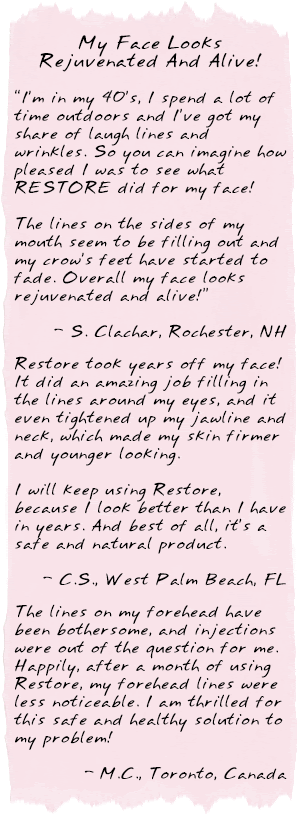 My Face Looks
Rejuvenated And Alive!
"I'm in my 40's, I spend a lot of
time outdoors and I've got my
share of laugh lines and
wrinkles. So you can imagine how
pleased I was to see what
RESTORE did for my face!
The lines on the sides of my
mouth seem to be filling out and
my crow's feet have started to
fade. Overall my face looks
rejuvenated and alive!"
- S. Clachar, Rochester, NH
Restore took years off my face!
It did an amazing job filling in
the lines around my eyes, and it
even tightened up my jawline and
neck, which made my skin firmer
and younger looking.
I will keep using Restore,
because I look better than I have
in years. And best of all, it's a
safe and natural product.
- C.S., West Palm Beach, FL
The lines on my forehead have
been bothersome, and injections
were out of the question for me.
Happily, after a month of using
Restore, my forehead lines were
less noticeable. I am thrilled for
this safe and healthy solution to
my problem!
- M.C., Toronto, Canada